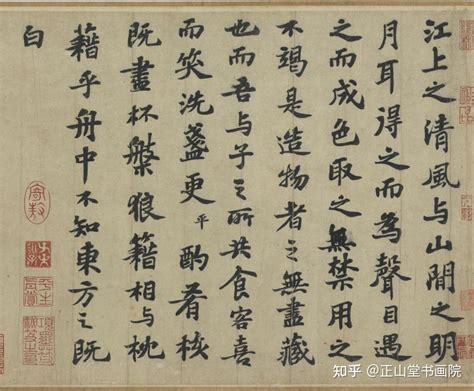 江上之清風与山間之明
月耳得之而為聲目遇
之而成色取之無禁用之
不竭是造物者之無盡藏
也而吾与子之所共食客喜
而笑洗盞更平酌肴核
既盡杯槃狼籍相与枕
藉乎舟中不知東方之既
白
知乎 @正山堂书画院